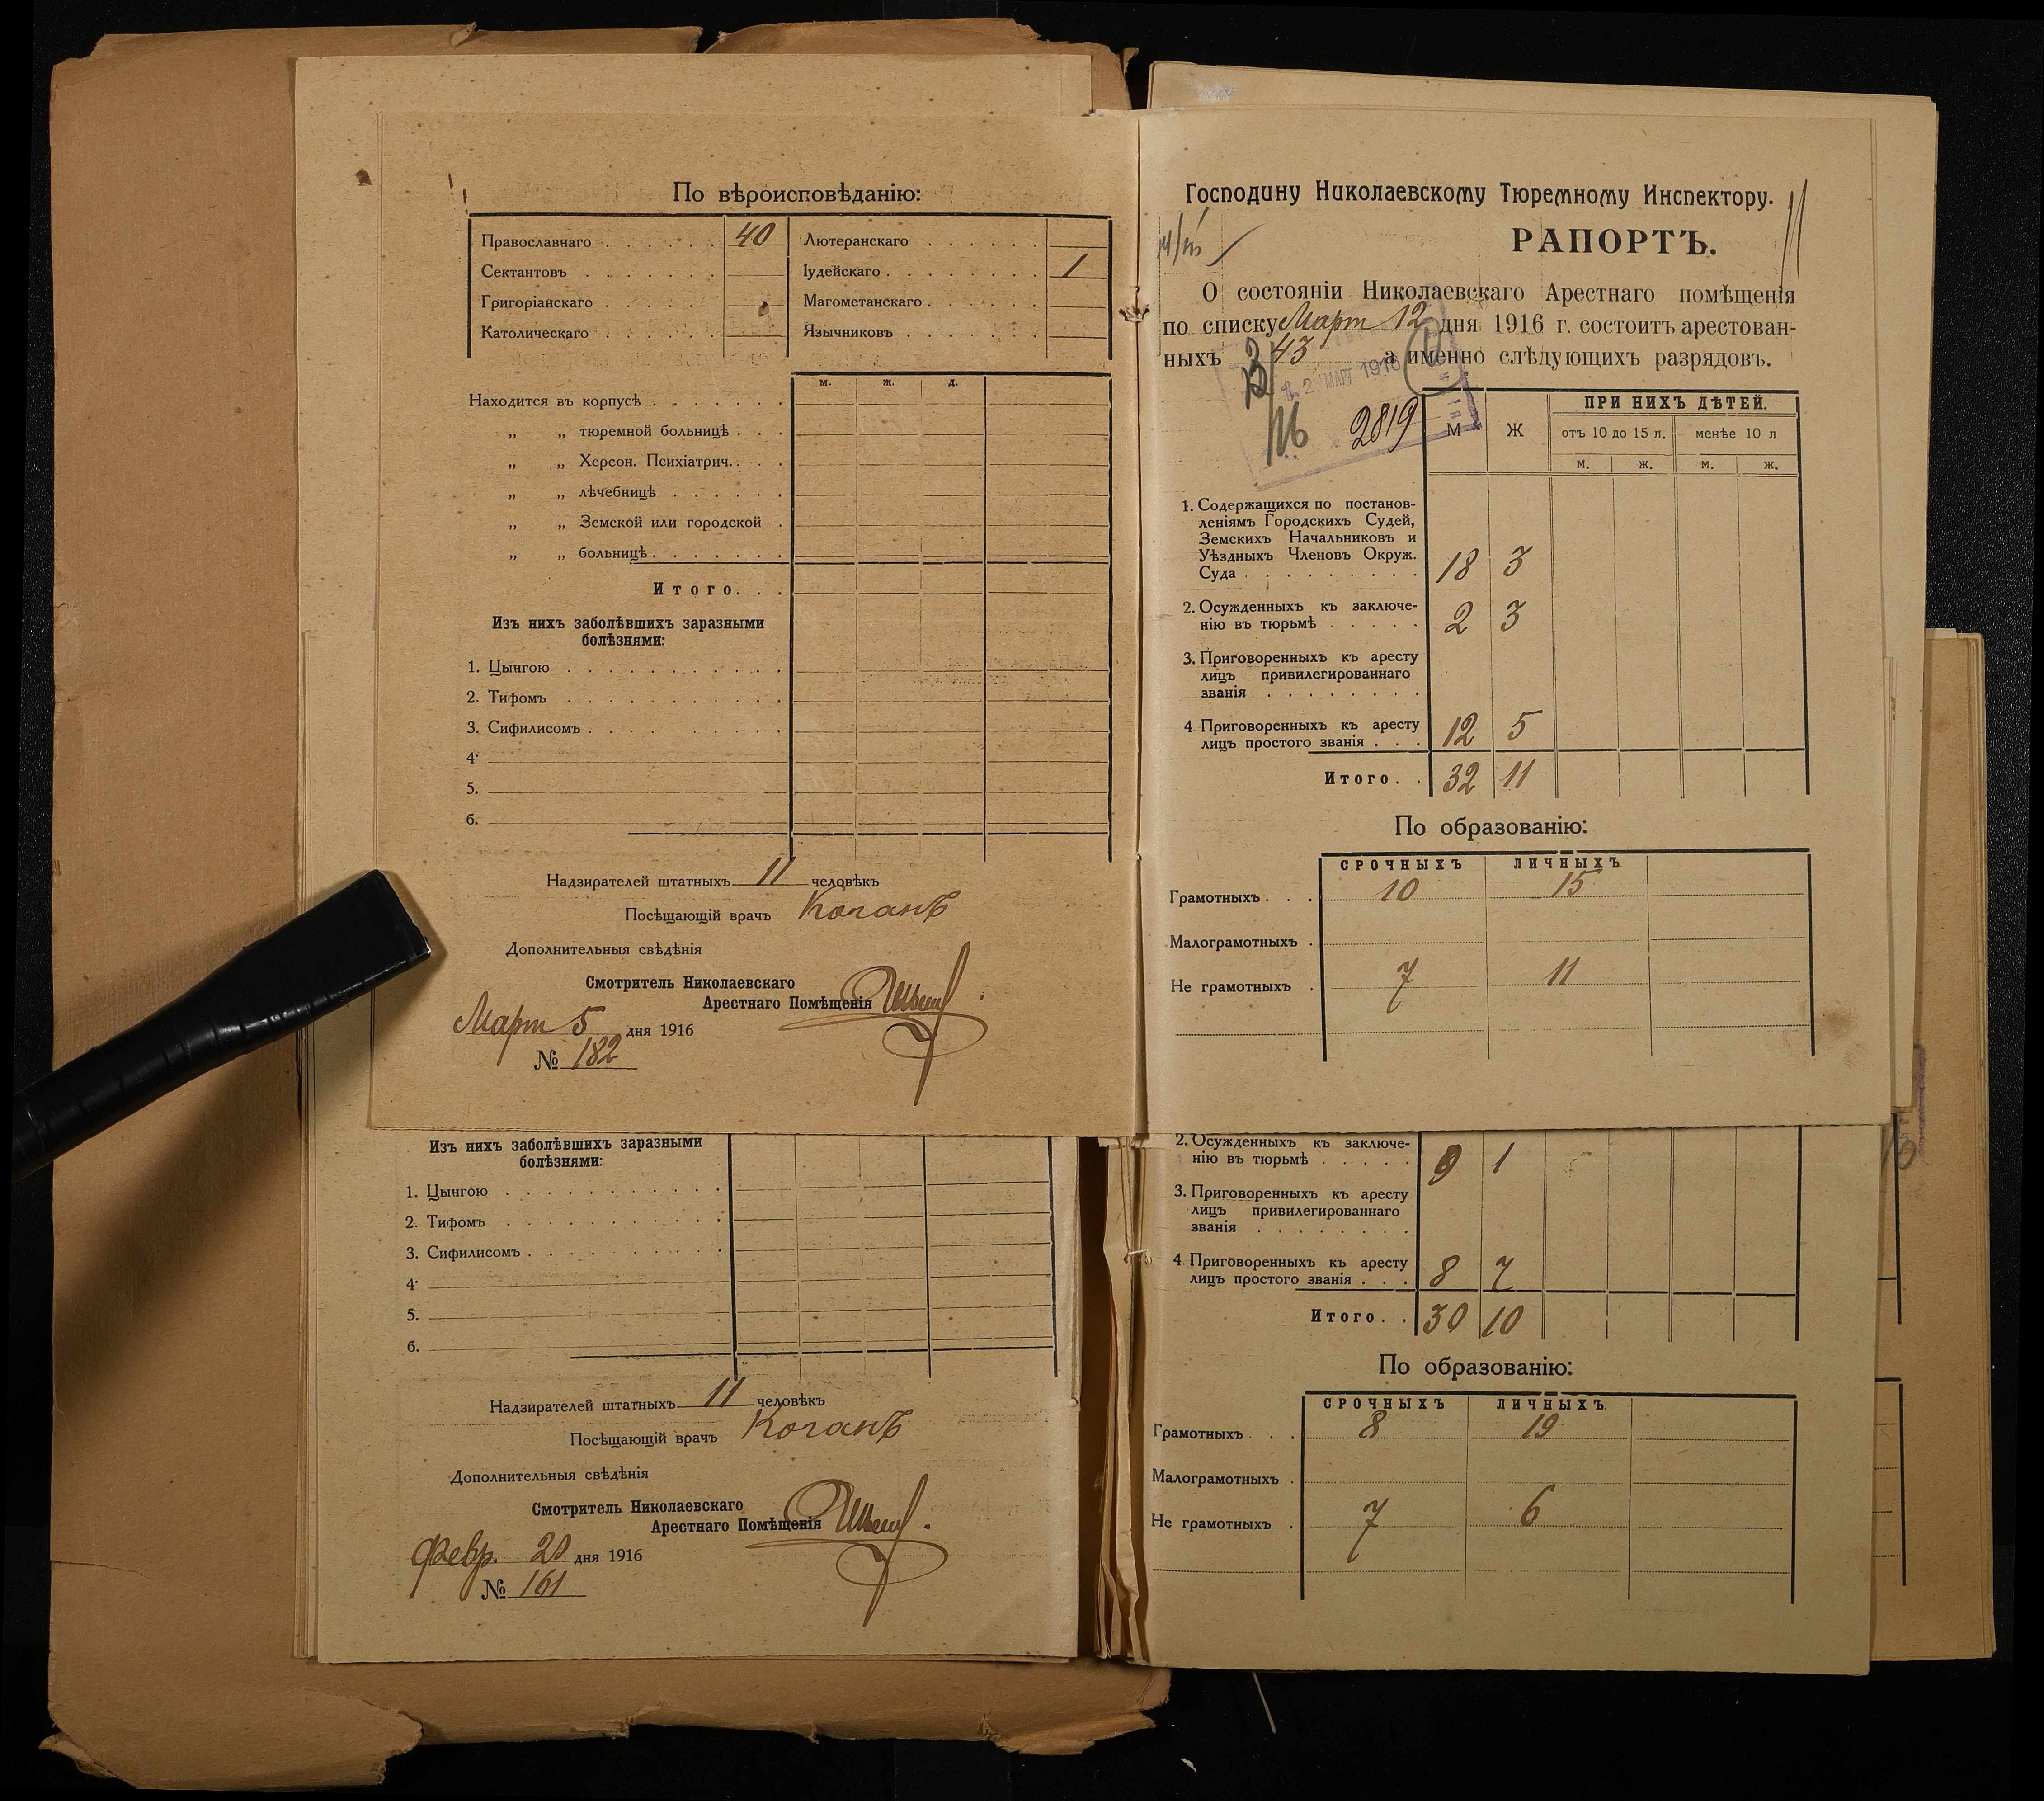 По вѣроисповѣданію:
Православнаго . . . . . . 40 Лютеранскаго . . . . . .
Сектантовъ . . . . . . . Іудейскаго . . . . . . . . 1
Григоріанскаго . . . . . Магометанскаго . . . . . .
Католическаго . . . . . . Язычниковъ . . . . . . .
м. ж. д.
Находится въ корпусѣ . . . . . . .
„ „ тюремной больницѣ . . .
„ „ Херсон. Психіатрич. . . .
„ „ лѣчебницѣ . . . . . .
„ „ Земской или городской .
„ „ больницѣ . . . . . . .
Итого. . .
Изъ нихъ заболѣвшихъ заразными
болѣзнями:
1. Цынгою . . . . . . . . . . .
2. Тифомъ . . . . . . . . . . .
3. Сифилисомъ . . . . . . . . . .
4.
5.
6.
Надзирателей штатныхъ 11 человѣкъ
Посѣщающій врачъ Коганъ
Дополнительныя свѣдѣнія
Смотритель Николаевскаго
Арестнаго Помѣщенія
Март 5 дня 1916
№ 182
Изъ нихъ заболѣвшихъ заразными
болѣзнями:
1. Цынгою . . . . . . . . . . .
2. Тифомъ . . . . . . . . . . .
3. Сифилисомъ . . . . . . . . . .
4.
5.
6.
Надзирателей штатныхъ 11 человѣкъ
Посѣщающій врачъ Коганъ
Дополнительныя свѣдѣнія
Смотритель Николаевскаго
Арестнаго Помѣщенія
Февр. дня 1916
№ 161
Господину Николаевскому Тюремному Инспектору.
РАПОРТЪ.
О состояніи Николаевскаго Арестнаго помѣщенія
по списку Март 12 дня 1916 г. состоитъ арестован-
ныхъ 43 а именно слѣдующихъ разрядовъ.
12 МАРТ 1916
2819
М Ж ПРИ НИХЪ ДѢТЕЙ.
отъ 10 до 15 л. менѣе 10 л.
м. ж. м. ж.
1. Содержащихся по постанов-
леніямъ Городскихъ Судей,
Земскихъ Начальниковъ и
Уѣздныхъ Членовъ Окруж.
Суда . . . . . . . . . 18 3
2. Осужденныхъ къ заключе-
нію въ тюрьмѣ . . . . . 2 3
3. Приговоренныхъ къ аресту
лицъ привилегированнаго
званія . . . . . . . .
4. Приговоренныхъ къ аресту
лицъ простого званія . . . 12 5
Итого. . 32 11
По образованію:
СРОЧНЫХЪ ЛИЧНЫХЪ
Грамотныхъ . . . 10 15
Малограмотныхъ .
Не грамотныхъ . 7 11
2. Осужденныхъ къ заключе-
нію въ тюрьмѣ . . . . . 9 1
3. Приговоренныхъ къ аресту
лицъ привилегированнаго
званія . . . . . . . .
4. Приговоренныхъ къ аресту
лицъ простого званія . . . 8 7
Итого. . 30 10
По образованію:
СРОЧНЫХЪ ЛИЧНЫХЪ.
Грамотныхъ . . . 8 19
Малограмотныхъ .
Не грамотныхъ . 7 6